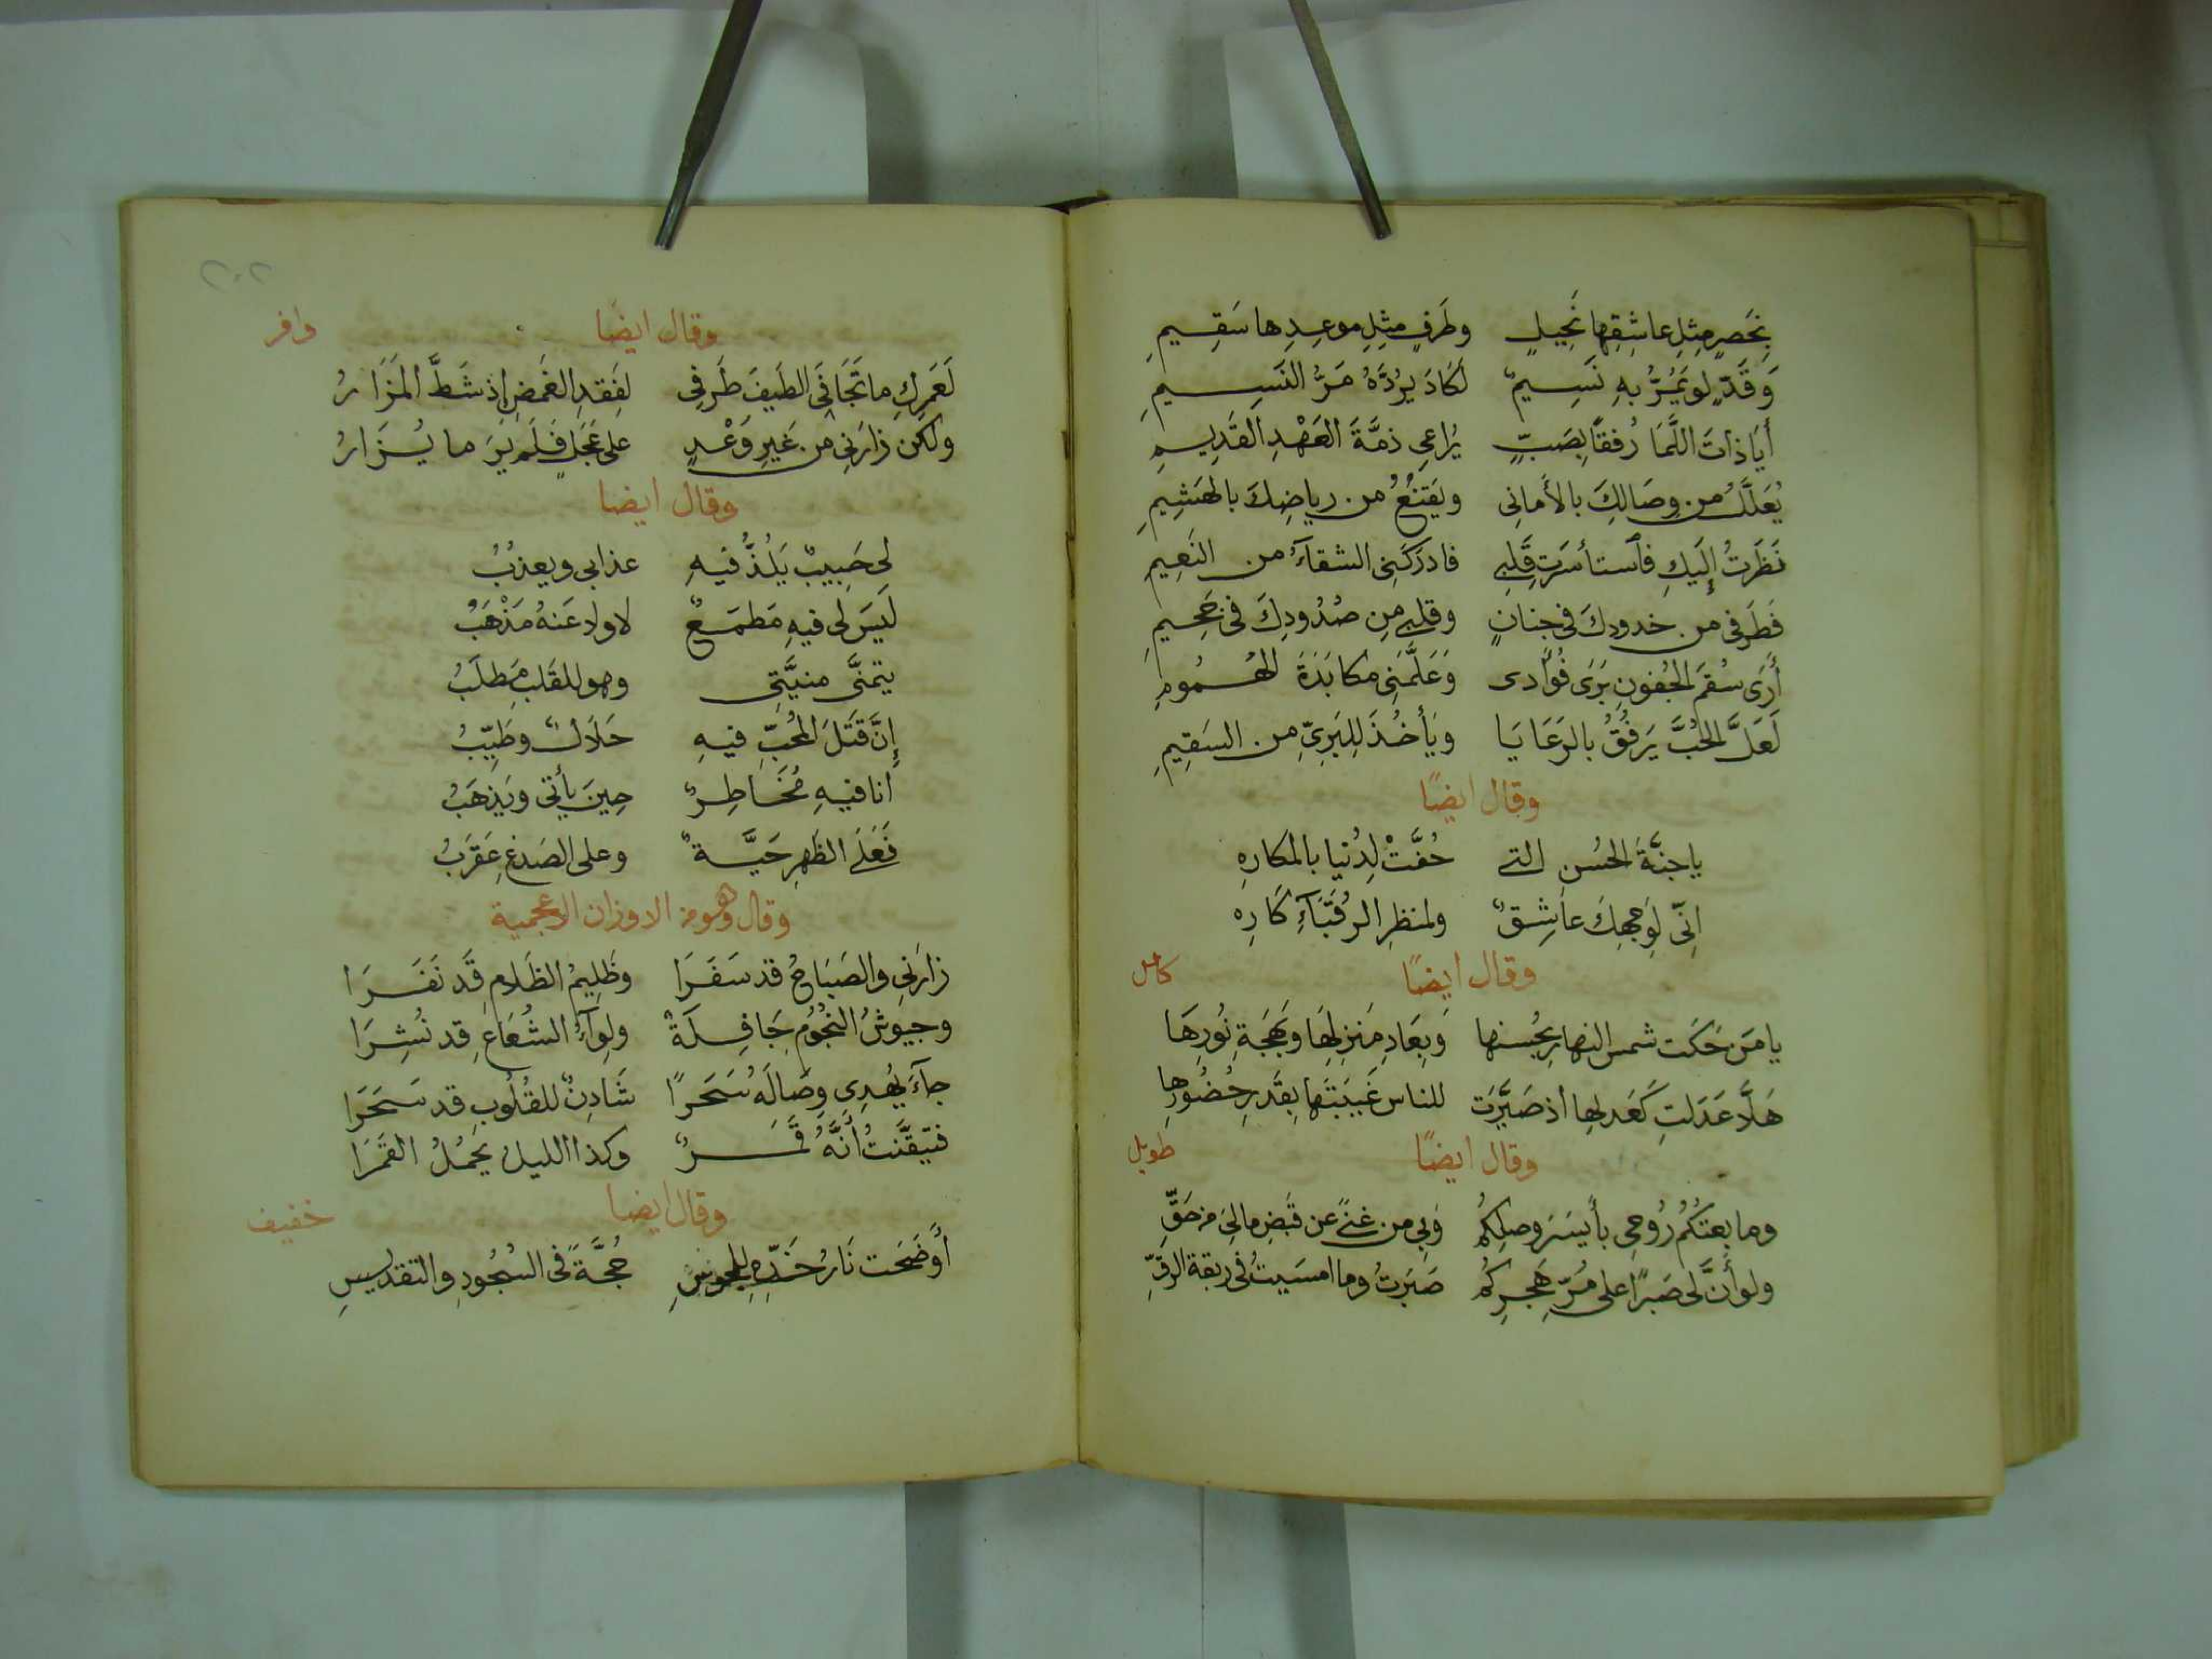 بِخَصرٍ مِثلِ عاشِقِها نَحِيلٍ وطَرفٍ مِثلِ موعِدِها سَقِيمِ
وَقَدٍّ لو يَمُرُّ بهِ نَسِيمٌ لكَادَ يرُدَّهُ مَرُّ النَسِيمِ
أَيَا ذاتَ اللَّمَا رُفقاً بِصَبٍّ يُراعِي ذمَّةَ العَهْدِ القَدِيمِ
يُعَلَّلُ من وِصَالِكَ بالأَمانِى ويَقنَعُ من رياضِكَ بالهَشِيمِ
نَظَرتُ إِلَيكِ فاَستأسَرتِ قَلبِي فادرَكَنِى الشقاءُ من النَعِيمِ
فَطَرفى من خدودِكَ في جِنانٍ وقلبِي مِن صُدُودِكَ فى جَحِيمِ
أَرَى سُقمَ الجُفونِ بَرَى فُوَادى وَعَلَّمَنِى مكابَدَةَ الهُمُومِ
لَعَلَّ الحُبَّ يَرفُقُ بالرَعَايَا ويَأخُذَ لِلبَرِيِّ من السَقِيمِ
وقال ايضًا
ياجنَّةَ الحُسنِ التي حُفَّتْ لِدُنيا بالمكارِهِ
اِنِّى لِوَجهِكَ عاَشِقٌ ولمنظرِ الرُقَبَآءِ كَارِه
وقال ايضًا كامل
يا مَن حَكَت شمس النهارِ بحُسنها وَبِعَادِ مَنزِلِهَا وبَهجَةِ نُورِهَا
هَلَّا عَدَلتِ كَعَدلِها اذ صَيَّرَت للناس غَيبَتَها بِقَدرِ حُضُورِها
وقال ايضًا طويل
وما بِعتُكُمْ رُوحِى بأَيسَرَ وصلِكُمْ وَبِي من غنىً عن قَبضِ مالىَ من حَقِّ
ولو أَنَّ لى صَبرًا على مُرِّ هَجرِكُمْ صَبَرتُ وما امسَيتُ فى رِبقةِ الرِقِّ
٢٠٢
وقال ايضا وافر
لَعَمرِكِ ما تَجَافَى الطَيفَ طَرفِى لِفَقدِ الغَمضِ اِذ شَطَّ المَزَارُ
ولكن زارَنِى من غَيرِ وَعْدٍ على عَجَلٍ فَلَم يَرَ ما يُزَارُ
وقال ايضا
لى حَبِيبٌ يَلُذُّ فيهِ عذابى ويعذبُ
لَيسَ لى فيهِ مَطمَعٌ لا ولا عَنهُ مَذْهَبُ
يتمنَّى منيَّتِى وهو للقَلب مَطلَبُ
إِنَّ قَتلَ المُحِبِّ فيهِ حَلَالٌ وطَيِّبُ
أنا فيهِ مُخَاطِرٌ حِينَ يأتى ويَذهَبُ
فَعَلَى الظَهرِ حَيَّةٌ وعلى الصَدغِ عَقرَبُ
وقال وهو من الاوزان الاعجمية
زارَنِى والصَبَاحُ قد سَفَرَا وظَلِيمُ الظَلامِ قَد نَفَرَا
وجيوشُ النجُوُمِ جَافِلَةٌ ولِوآءُ الشُعَاعِ قد نُشِرَا
جآءَ يُهدِى وِصَالَهُ سَحَرًا شَادِنٌ للقُلُوبِ قد سَحَرَا
فتيقَّنتُ أَنَّهُ قَمَرٌ وكذا الليلُ يَحمُلُ القَمَرَا
وقال ايضا خفيف
أَوضَحَت نَارُ خَدِّهِ للمجوسِ حُجَّةً فى السُجُودِ والتقديسِ